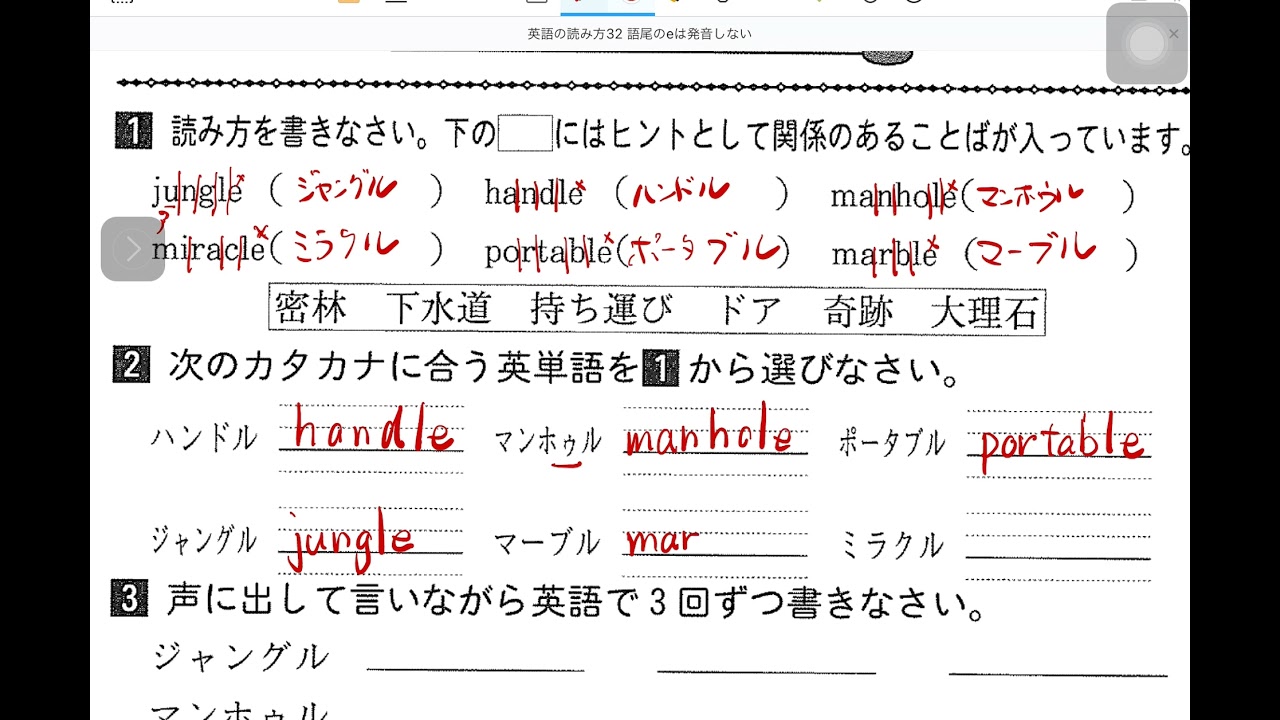 英語の読み方32 語尾のeは発音しない
1 読み方を書きなさい。下の□にはヒントとして関係のあることばが入っています。
jungle (ジャングル) handle (ハンドル) manhole (マンホゥル)
miracle (ミラクル) portable (ポータブル) marble (マーブル)
密林 下水道 持ち運び ドア 奇跡 大理石
2 次のカタカナに合う英単語を1から選びなさい。
ハンドル handle マンホゥル manhole ポータブル portable
ジャングル jungle マーブル mar ミラクル
3 声に出して言いながら英語で3回ずつ書きなさい。
ジャングル
マンホゥル